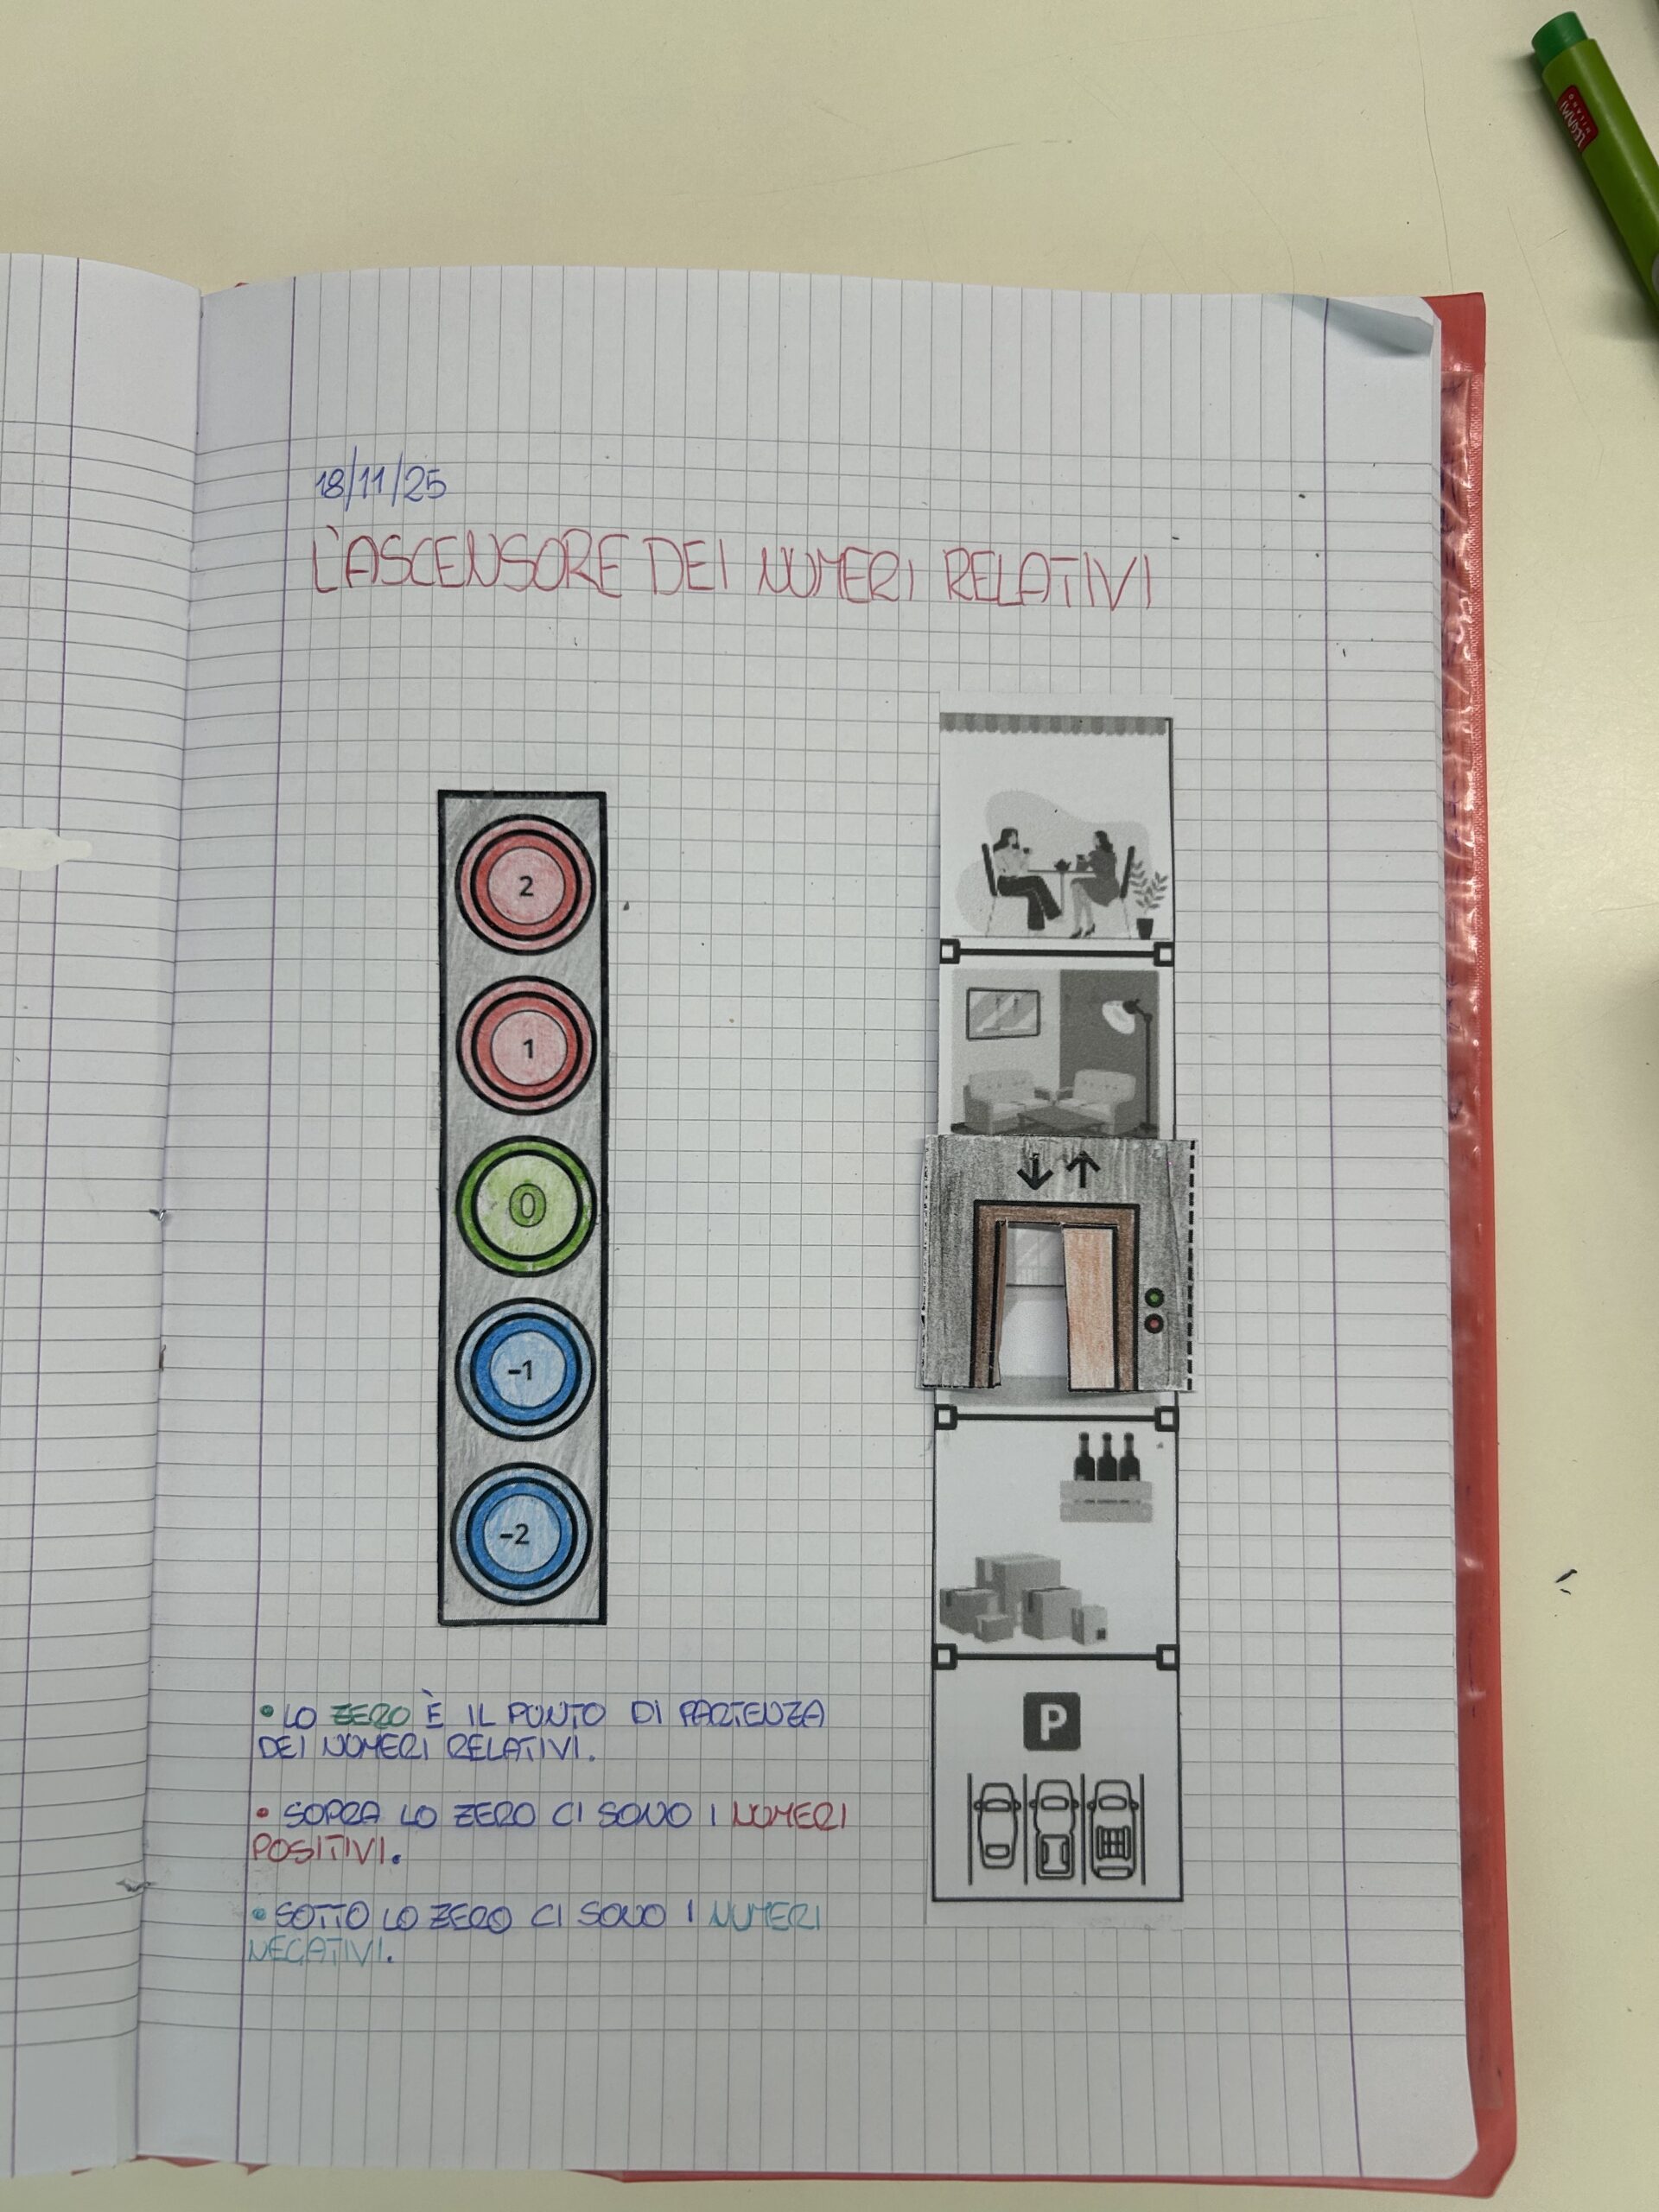 18/11/25
L'ASCENSORE DEI NUMERI RELATIVI
2
1
0
-1
-2
P
• LO ZERO È IL PUNTO DI PARTENZA
DEI NUMERI RELATIVI.
• SOPRA LO ZERO CI SONO I NUMERI
POSITIVI.
• SOTTO LO ZERO CI SONO I NUMERI
NEGATIVI.
LEGAMI
MILANO